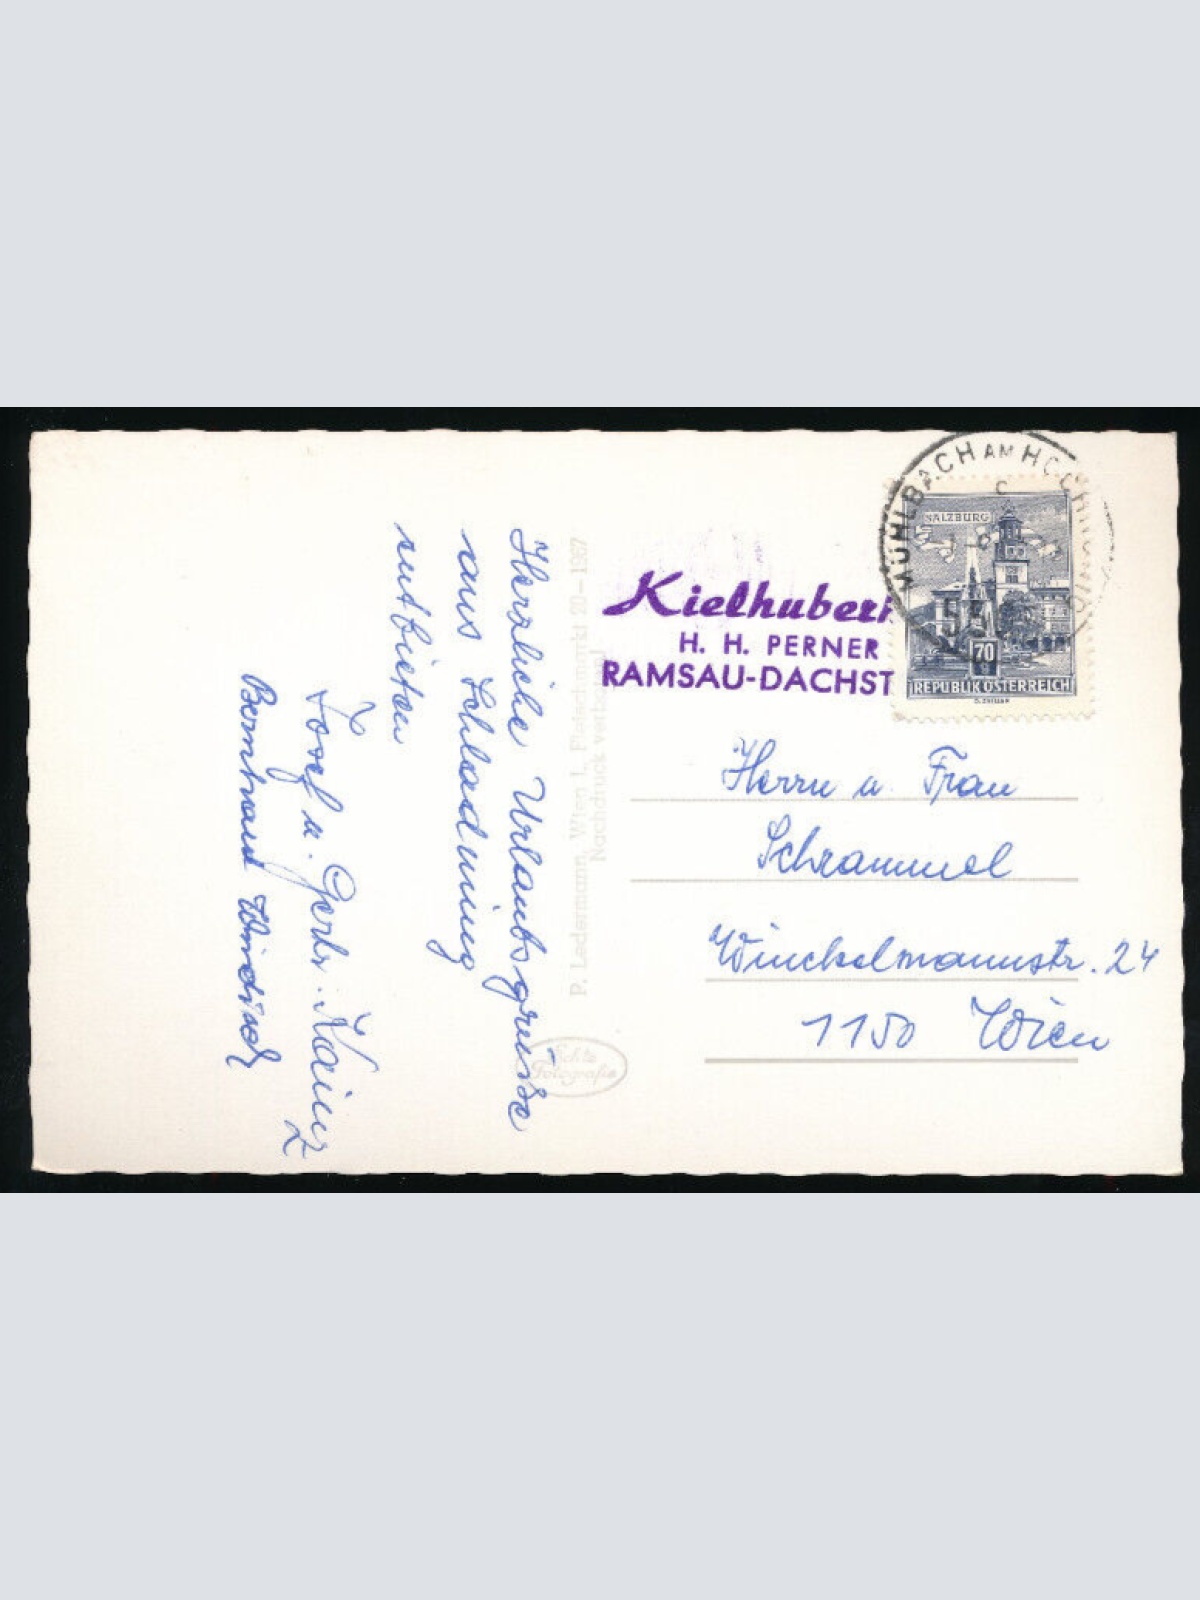 Herzliche Urlaubsgrüsse
aus Schladming
entbieten
Josef u. Gerti Kainz
Bernhard Windisch
P. Ledermann, Wien I., Fleischmarkt 20 – 1967
Nachdruck verboten!
Echte
Fotografie
Kielhuberh
H. H. PERNER
RAMSAU-DACHST
MÜHLBACH AM HOCHKÖNIG
C
SALZBURG
70
REPUBLIK ÖSTERREICH
Herrn u. Frau
Schrammel
Winckelmannstr. 24
1150 Wien